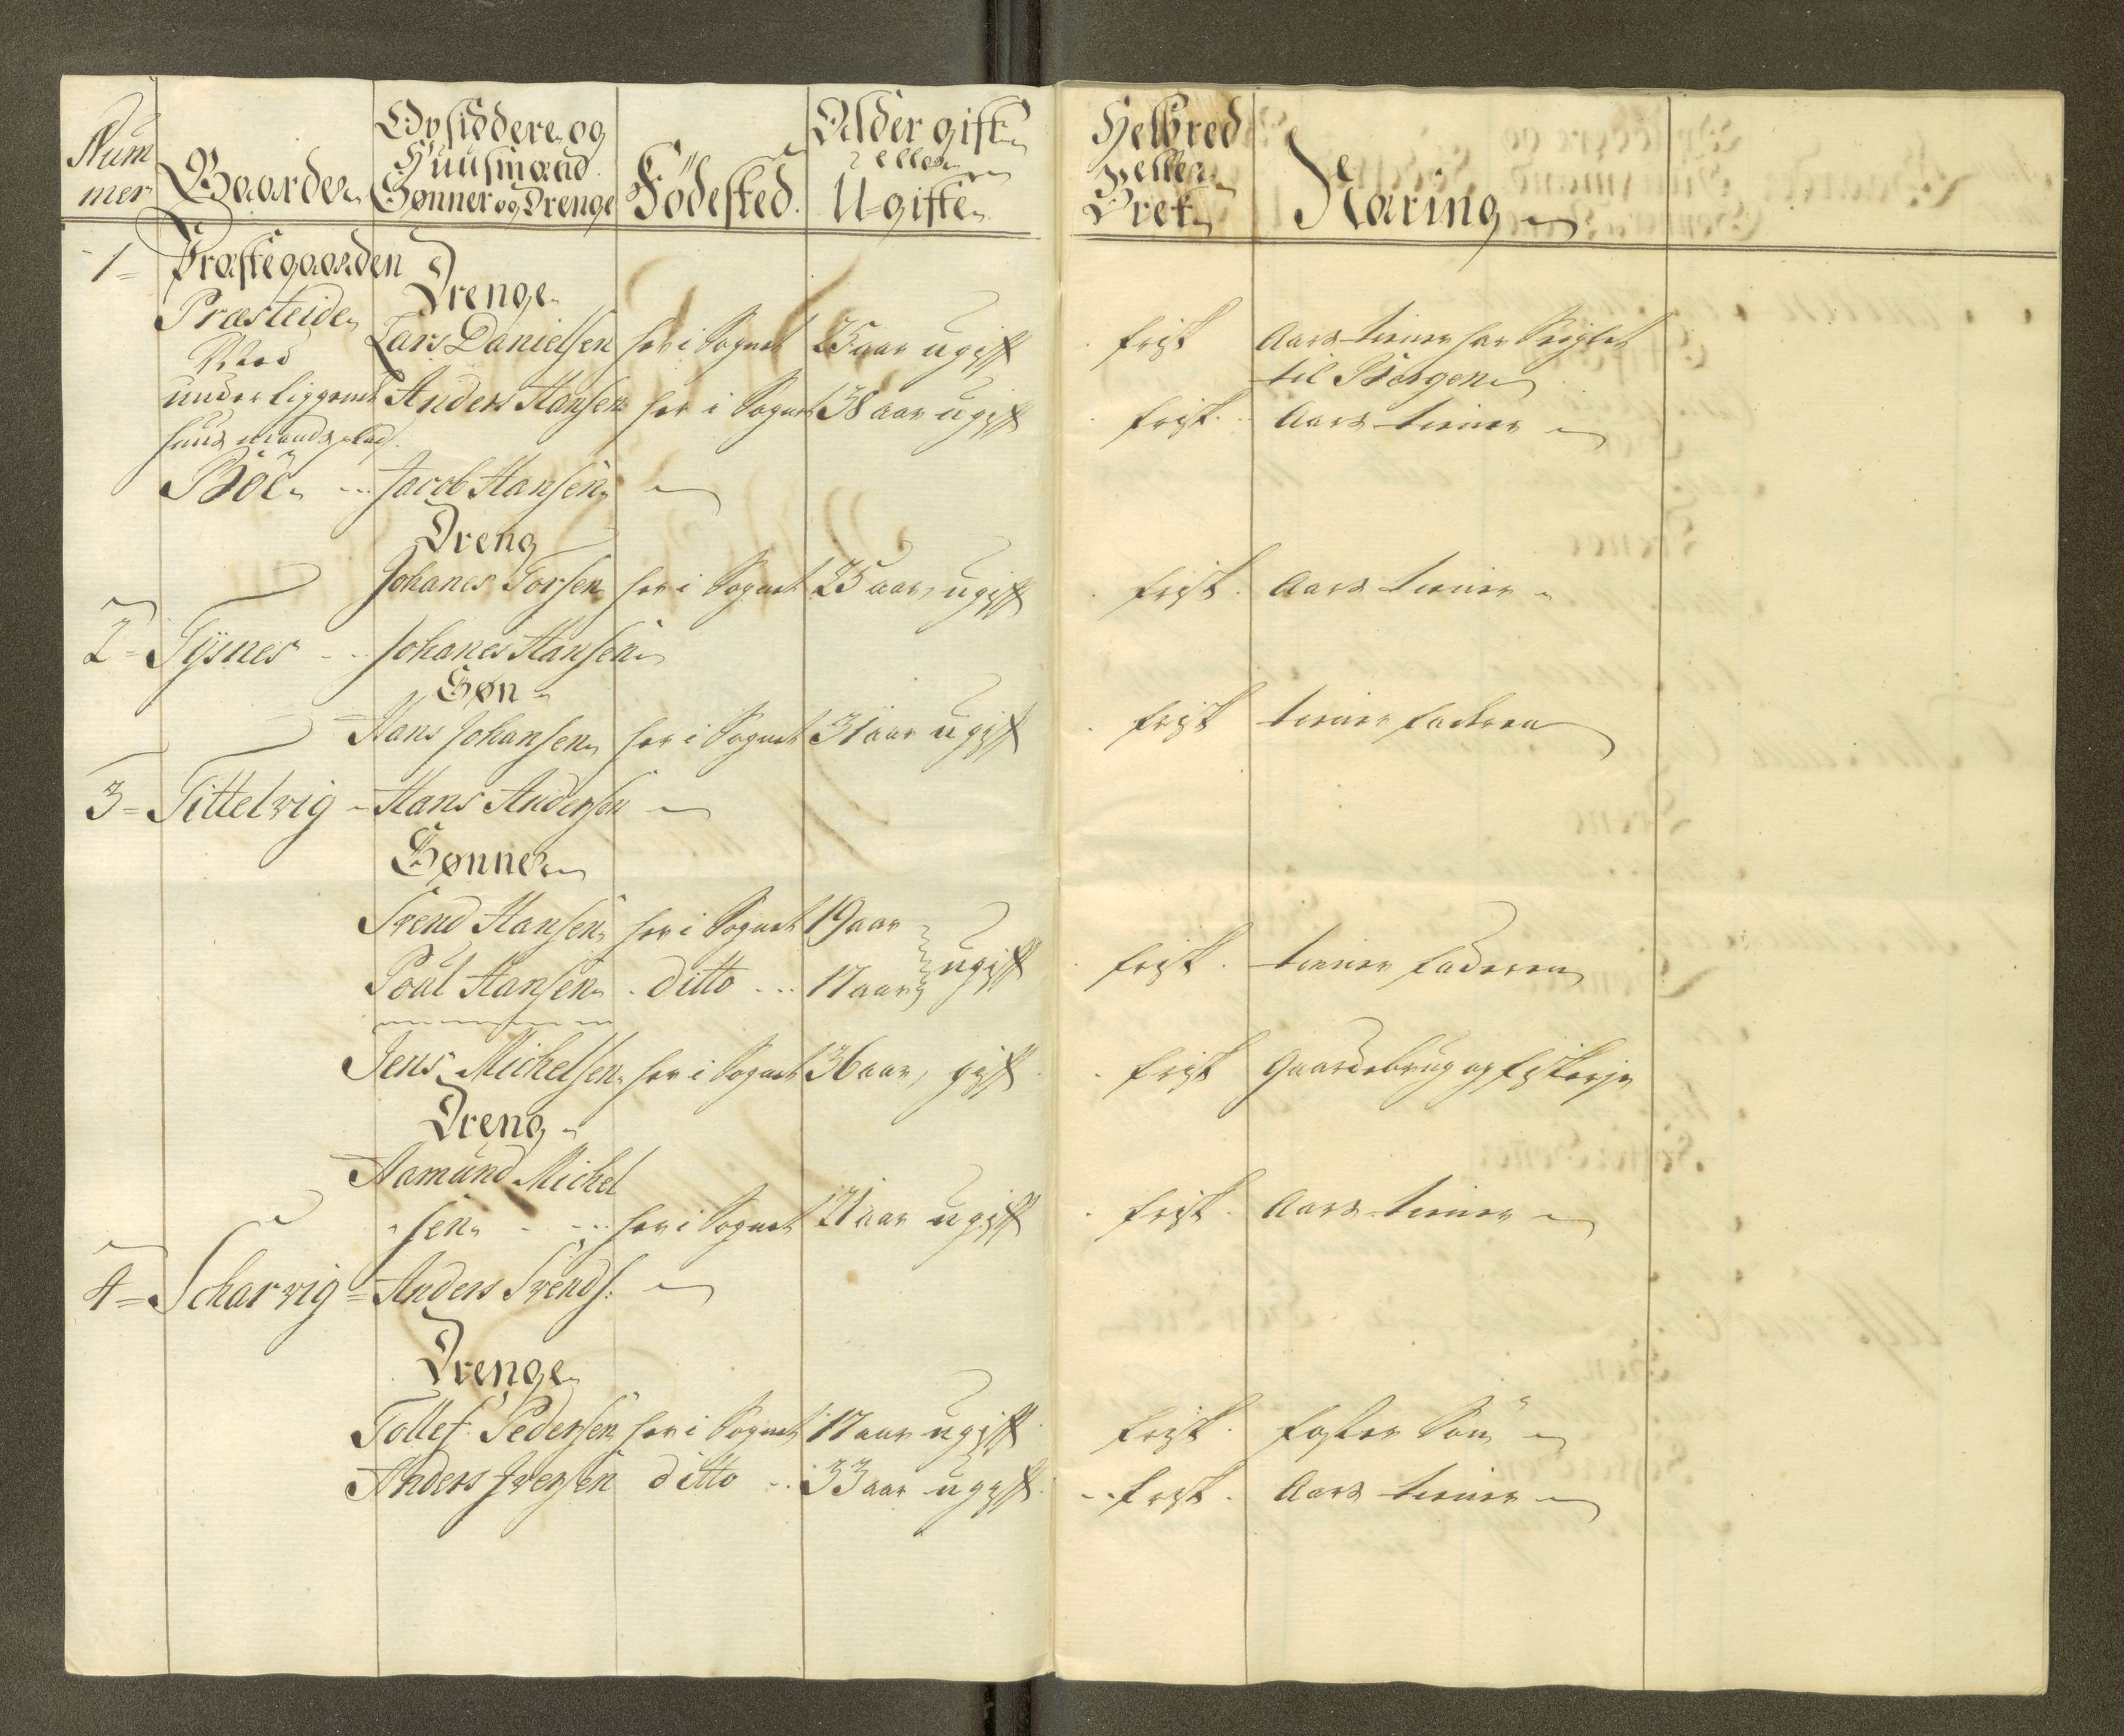 Num
mer
Gaarder
Opsiddere og
Huusmænd
Sønner og Drenge
Födested.
Alder gift
eller
Ugifte
Helbred
eller
Vrek
Næring
1 = Præstegaarden
Drenge
Præsteide
Lars Danielsen her i Sognet 25 aar ugift frisk Aars tiener har Seiglet
til Bergen
Med
underliggende Anders Hansen her i Sognet 38 aar ugift frisk. Aars tiener
huusmands plads.
Böe Jacob Hansen
Dreng
Johanes Torsen her i Sognet 25 aar, ugift frisk. Aars tiener
2 = Tÿsnes Johanes Hansen
Søn
Hans Johansen her i Sognet 31 aar ugift frisk tiener faderen
3 = Tittelvig Hans Andersen
Sønner
Svend Hansen her i Sognet 19 aar
ugift frisk. tiener faderen
Poul Hansen ditto 17 aar
Jens Michelsen her i Sognet 36 aar, gift frisk Gaardebrug og fiskerje
Dreng
Aamund Michel
sen her i Sognet 21 aar ugift frisk. Aars tiener
4 = Scharvig = Anders Svends.
Drenge
Tollef Pedersen her i Sognet 17 aar ugift frisk. foster Søn
Anders Iversen ditto 33 aar ugift. frisk. Aars tiener